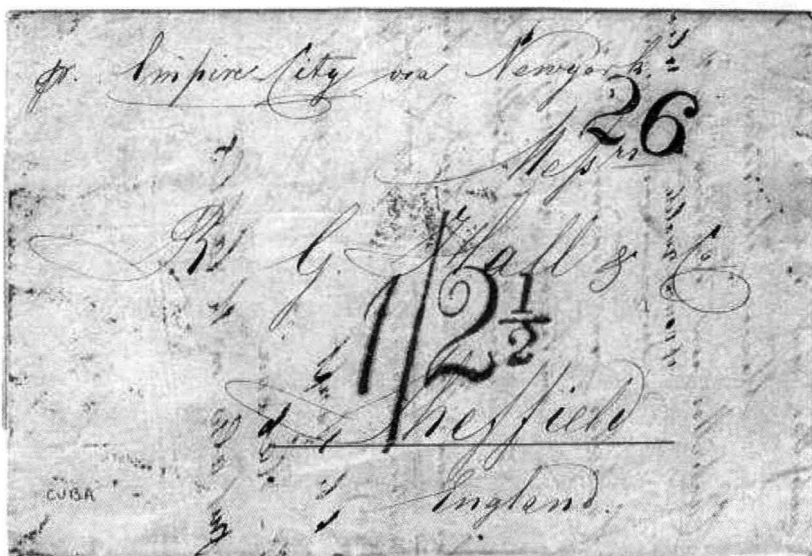 pr. Empire City via Newyork.
26
Messrs
R. G. Hall & Co
1/2½
Sheffield
England.
CUBA